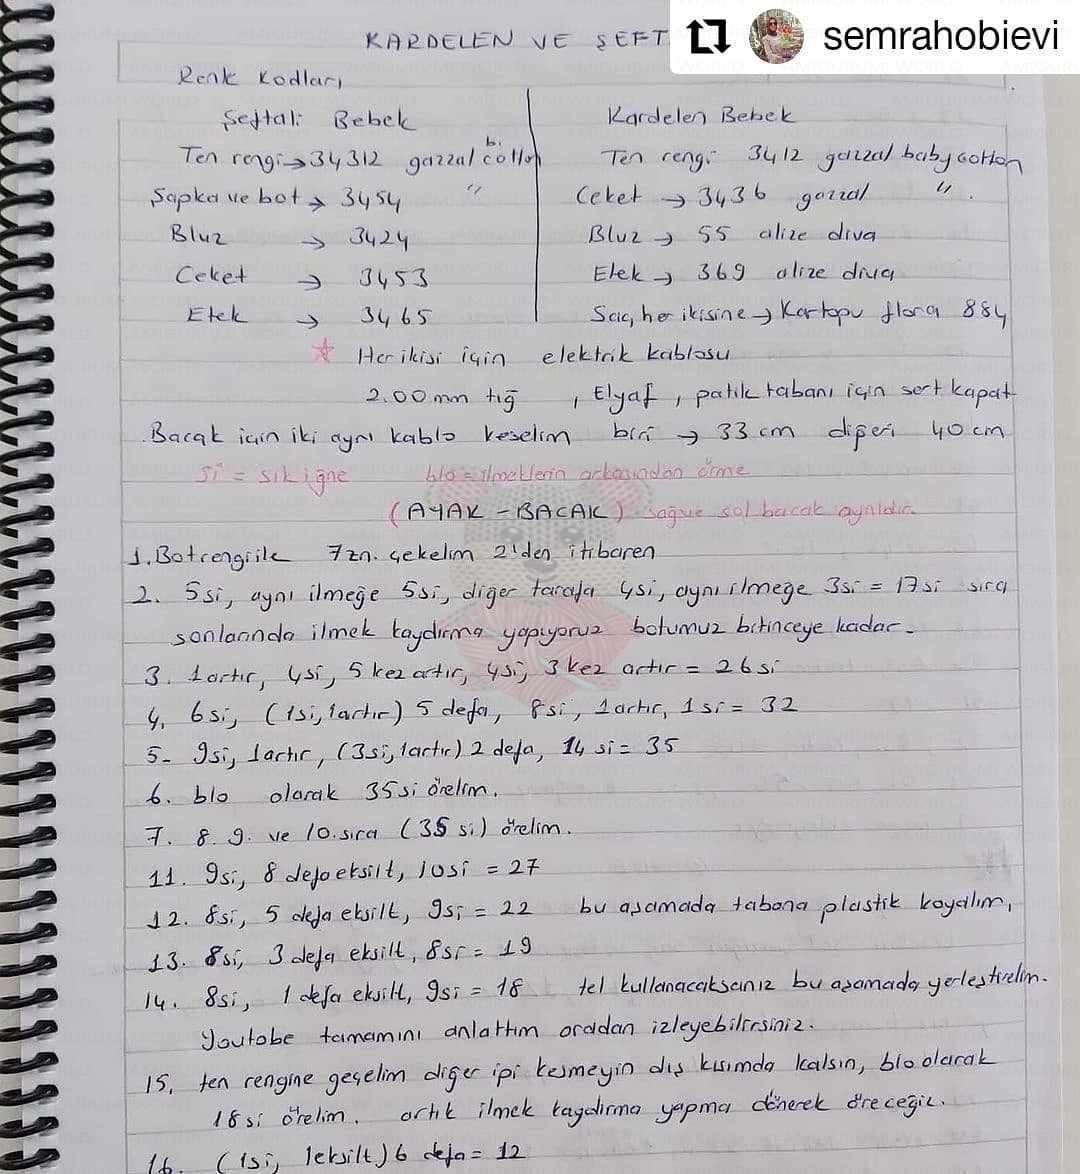 semrahobievi
KARDELEN VE ŞEFT
Renk Kodları,
Şeftali Bebek
Ten rengi → 34312 gazzal b. cotton
Şapka ve bot → 3454 "
Bluz → 3424
Ceket → 3453
Etek → 3465
Kardelen Bebek
Ten rengi 3412 gazzal baby cotton
Ceket → 3436 gazzal ".
Bluz → 55 alize diva
Etek → 369 alize diva
Saç, her ikisine → Kartopu flora 884
☆ Her ikisi için elektrik kablosu
2.00 mm tığ , Elyaf , patik tabanı için sert kapat
Bacak için iki ayrı kablo keselim biri → 33 cm diğeri 40 cm
Si = sık iğne blo = ilmeklerin arkasından örme
(AYAK - BACAK) sağ ve sol bacak aynıdır.
1. Bot rengi ile 7 zn. çekelim 2'den itibaren
2. 5si, aynı ilmeğe 5si, diğer tarafa 4si, aynı ilmeğe 3si = 17si sıra
sonlarında ilmek kaydırma yapıyoruz botumuz bitinceye kadar.
3. 1 artır, 4si, 5 kez artır, 4si, 3 kez artır = 26 si
4. 6si, (1si, 1artır) 5 defa, 8si, 1artır, 1si = 32
5- 9si, 1artır, (3si, 1artır) 2 defa, 14 si = 35
6. blo olarak 35si örelim.
7. 8. 9. ve 10. sıra (35 si) örelim.
11. 9si, 8 defa eksilt, 10si = 27
12. 8si, 5 defa eksilt, 9si = 22 bu aşamada tabana plastik koyalım,
13. 8si, 3 defa eksilt, 8si = 19
14. 8si, 1 defa eksilt, 9si = 18 tel kullanacaksanız bu aşamada yerleştirelim.
Youtobe tamamını anlattım oradan izleyebilirsiniz.
15. ten rengine geçelim diğer ipi kesmeyin dış kısımda kalsın, blo olarak
18si örelim. artık ilmek kaydırma yapma dönerek öreceğiz.
16. (1si, 1eksilt) 6 defa = 12